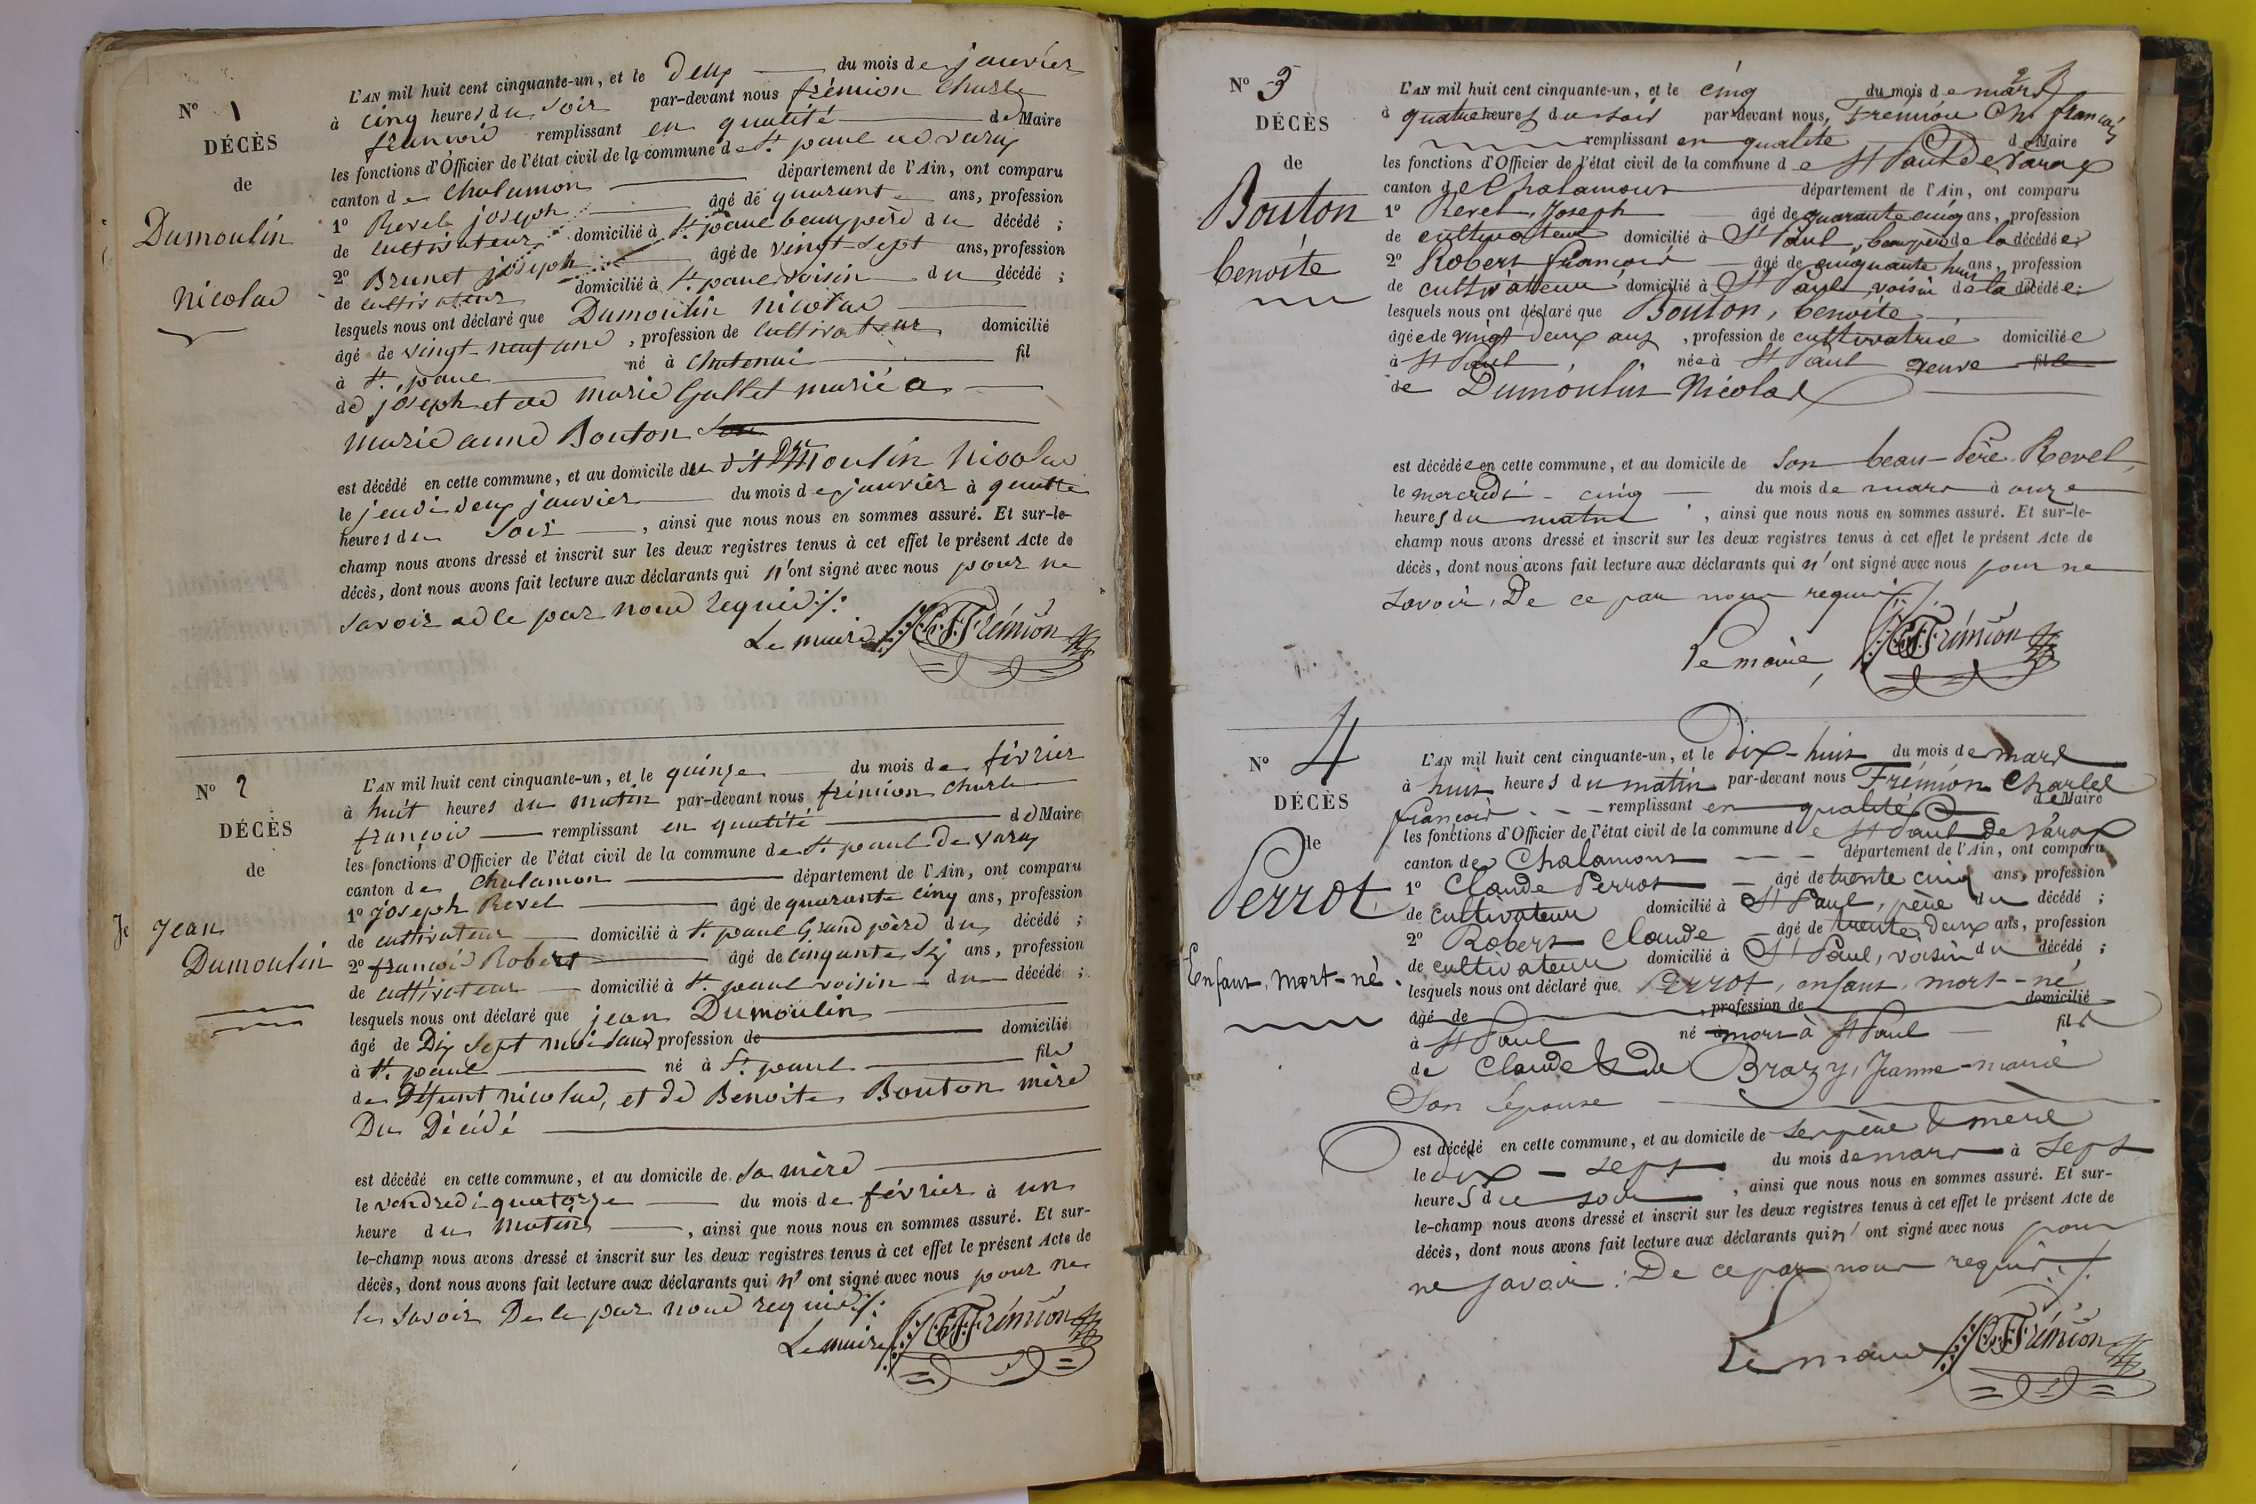 N° 1
DÉCÈS
de
Dumoulin
nicolas
L'AN mil huit cent cinquante-un, et le deux du mois de janvier
à cinq heures du soir par-devant nous frémion Charle
françois remplissant en qualité de Maire
les fonctions d'Officier de l'état civil de la commune de St. paul de varax
canton de chalamon département de l'Ain, ont comparu
1° Revel joseph âgé de quarante ans, profession
de cultivateur domicilié à St. paul beaupère du décédé ;
2° Brunet joseph âgé de vingt sept ans, profession
de cultivateur domicilié à St. paul voisin du décédé ;
lesquels nous ont déclaré que Dumoulin nicolas
âgé de vingt-neuf ans, profession de cultivateur domicilié
à St. paul né à chatenai fil
de joseph et de marie Gallet marié a
marie anne Bouton
est décédé en cette commune, et au domicile du dit Dumoulin nicolas
le jeudi deux janvier du mois de janvier à quatre
heures du soir, ainsi que nous nous en sommes assuré. Et sur-le-
champ nous avons dressé et inscrit sur les deux registres tenus à cet effet le présent Acte de
décès, dont nous avons fait lecture aux déclarants qui n'ont signé avec nous pour ne
savoir de ce par nous requis ./.
Le maire CH. F. Frémion
N° 2
DÉCÈS
de
Je Jean
Dumoulin
L'AN mil huit cent cinquante-un, et le quinze du mois de février
à huit heures du matin par-devant nous frémion charle
françois remplissant en qualité de Maire
les fonctions d'Officier de l'état civil de la commune de St. paul de varax
canton de chalamon département de l'Ain, ont comparu
1° joseph Revel âgé de quarante cinq ans, profession
de cultivateur domicilié à St. paul Grand père du décédé ;
2° françois Robert âgé de cinquante six ans, profession
de cultivateur domicilié à St. paul voisin du décédé ;
lesquels nous ont déclaré que jean Dumoulin
âgé de Dix sept mois sans profession de domicilié
à St. paul né à St. paul fils
de Défunt nicolas, et de Benoite Bouton mère
Du Décédé
est décédé en cette commune, et au domicile de sa mère
le vendredi quatorze du mois de février à un
heure du matin, ainsi que nous nous en sommes assuré. Et sur-
le-champ nous avons dressé et inscrit sur les deux registres tenus à cet effet le présent Acte de
décès, dont nous avons fait lecture aux déclarants qui n'ont signé avec nous pour ne
le savoir De ce par nous requis ./.
Le maire CH. F. Frémion
2
N° 3
DÉCÈS
de
Bouton
benoite
L'AN mil huit cent cinquante-un, et le cinq du mois de mars
à quatre heures du soir par-devant nous, Frémion Ch. françois
remplissant en qualité de Maire
les fonctions d'Officier de l'état civil de la commune de St Paul de Varax
canton de Chalamont département de l'Ain, ont comparu
1° Revel, Joseph âgé de quarante cinq ans, profession
de cultivateur domicilié à St Paul, beaupère de la décédée
2° Robert françois âgé de cinquante huit ans, profession
de cultivateur domicilié à St Paul, voisin de la décédée ;
lesquels nous ont déclaré que Bouton, benoite
âgée de vingt deux ans, profession de cultivatrice domiciliée
à St Paul, née à St Paul veuve fille
de Dumoulin Nicolas
est décédée en cette commune, et au domicile de son beau-Père Revel,
le mercredi - cinq du mois de mars à onze
heures du matin, ainsi que nous nous en sommes assuré. Et sur-le-
champ nous avons dressé et inscrit sur les deux registres tenus à cet effet le présent Acte de
décès, dont nous avons fait lecture aux déclarants qui n'ont signé avec nous pour ne
savoir, De ce par nous requis ./.
Le maire, CH. F. Frémion
N° 4
DÉCÈS
de
Perrot,
Enfant, mort-né.
L'AN mil huit cent cinquante-un, et le dix-huit du mois de mars
à huit heures du matin par-devant nous Frémion Charles
françois - - - remplissant en qualité de Maire
les fonctions d'Officier de l'état civil de la commune de St Paul de Varax
canton de Chalamont département de l'Ain, ont comparu
1° Claude Perrot âgé de trente cinq ans, profession
de cultivateur domicilié à St Paul, père du décédé ;
2° Robert Claude âgé de trente deux ans, profession
de cultivateur domicilié à St Paul, voisin du décédé ;
lesquels nous ont déclaré que Perrot, enfant, mort-né
âgé de , profession de domicilié
à St Paul né à mort à St Paul fils
de Claude & de Brazy, Jeanne-marie
Son épouse
est décédé en cette commune, et au domicile de ses père & mère
le dix-sept du mois de mars à sept
heures du soir, ainsi que nous nous en sommes assuré. Et sur-
le-champ nous avons dressé et inscrit sur les deux registres tenus à cet effet le présent Acte de
décès, dont nous avons fait lecture aux déclarants qui n'ont signé avec nous pour
ne savoir : De ce par nous requis ./.
Le maire CH. F. Frémion